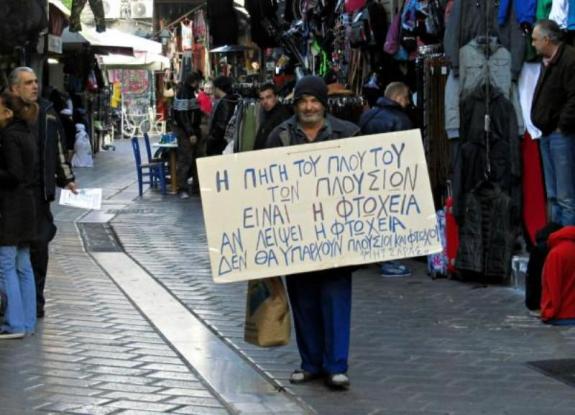 Η ΠΗΓΗ ΤΟΥ ΠΛΟΥΤΟΥ
ΤΩΝ ΠΛΟΥΣΙΩΝ
ΕΙΝΑΙ Η ΦΤΩΧΕΙΑ
ΑΝ ΛΕΙΨΕΙ Η ΦΤΩΧΕΙΑ
ΔΕΝ ΘΑ ΥΠΑΡΧΟΥΝ ΠΛΟΥΣΙΟΙ ΚΑΙ ΦΤΩΧΟΙ